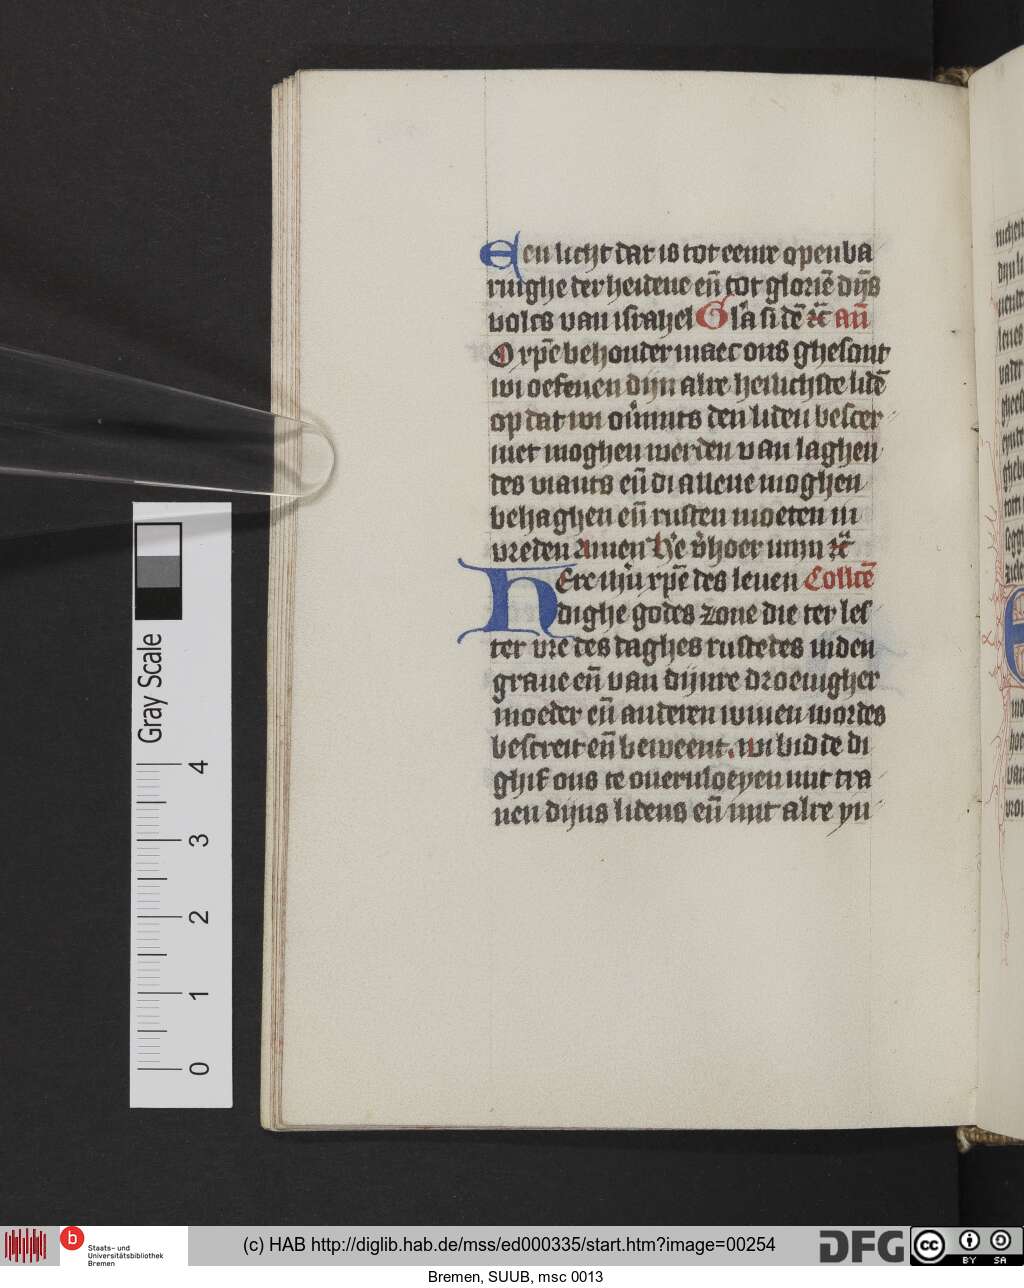 Een licht dat is tot eenre openba
ringhe der heidene en̄ tot glorie̅ dijs̅
volcs van israhel Glīa si dē ꝛc̄ an̄
O xpē behouder maect ons ghesont
wi oefenen dijn alre heilichste lidē
op dat wi ouͥmits den liden bescer
met moghen werden van laghen
des viants en̄ di allene moghen
behaghen en̄ rusten moeten in
vreden Amen He vͥhoer mijn ꝛc̄
HEre ihū xpē des leuen Collcē
dighe godes zone die ter les
ter vre des daghes rustedes inden
graue en̄ van dijnre droeuigher
moeder en̄ anderen wiuen wordes
bescreit en̄ beweent. wi bidde di
ghif ons te oueruloeyen mit tra
nen dijns lidens en̄ mit alre yn
Gray Scale
4
3
2
1
0
Staats- und
Universitätsbibliothek
Bremen
(c) HAB http://diglib.hab.de/mss/ed000335/start.htm?image=00254
DFG
cc
BY SA
Bremen, SUUB, msc 0013